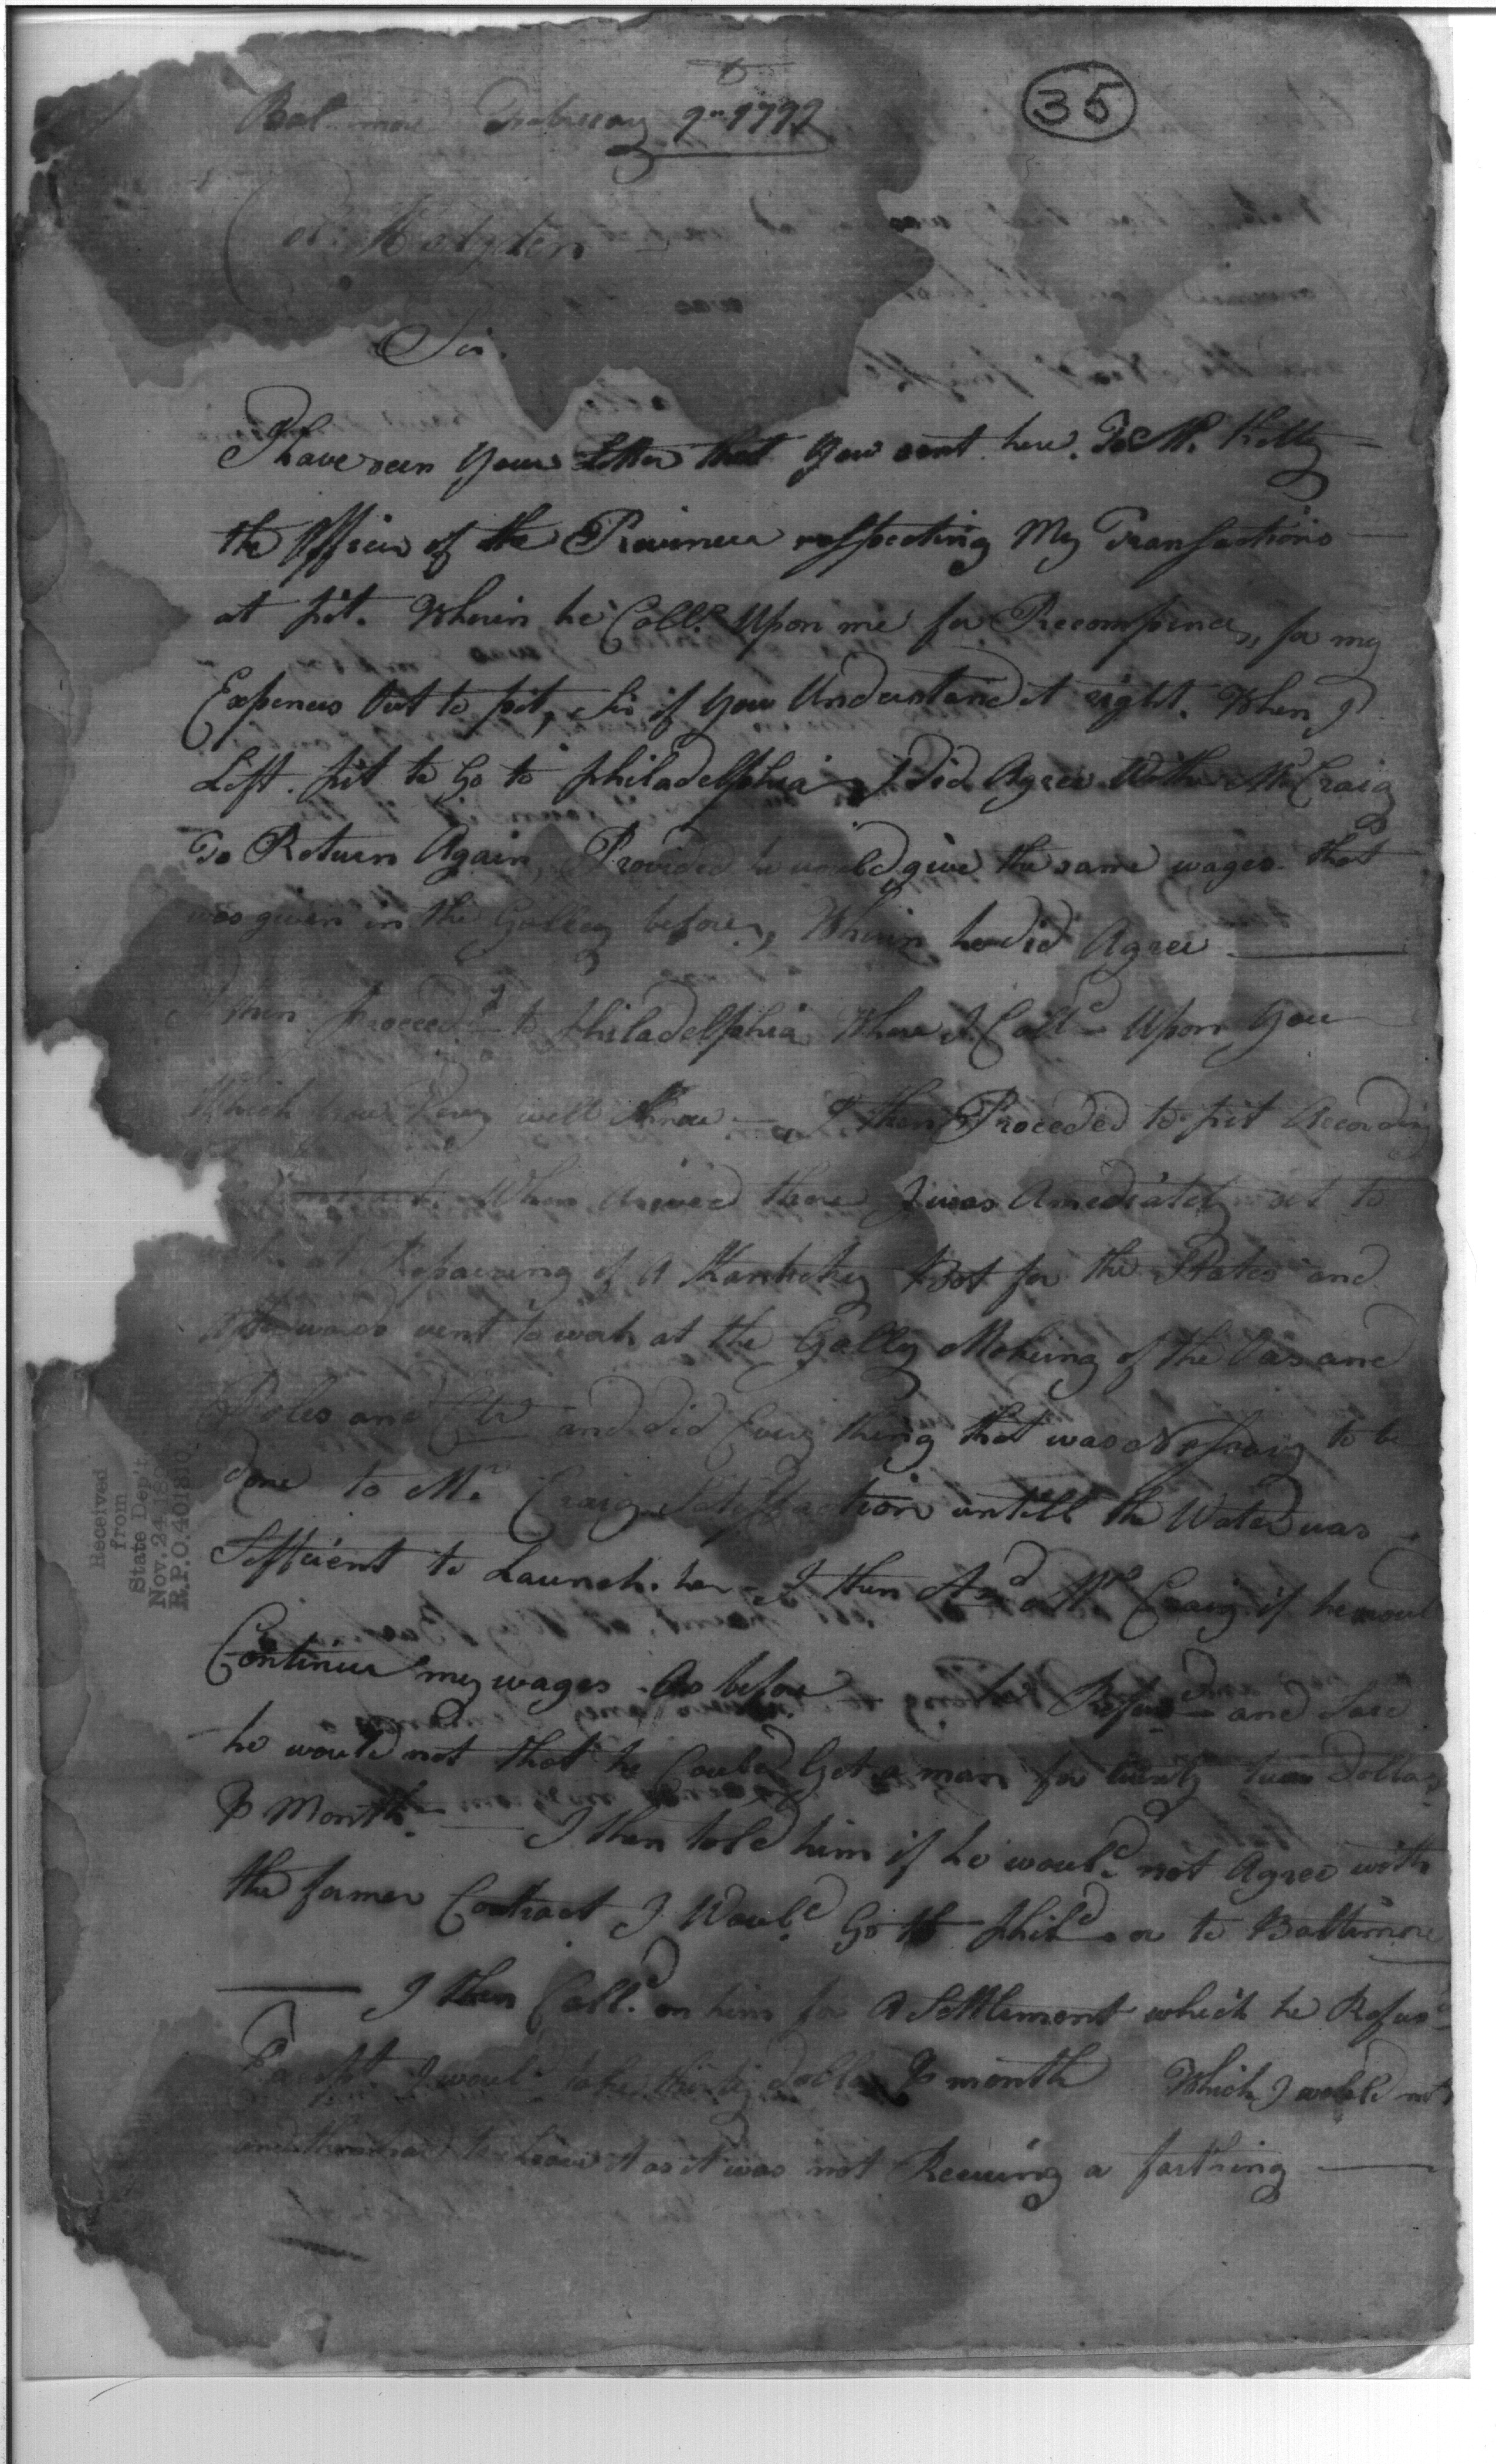 35
Baltimore February 9th 1799
Hodgden
Sir
I have seen your Letter that you sent here. To Mr. Kelty
the Officer of the Revineu respecting My Transactions
at pit. Wherein he Calld Upon me for Recompence, for my
Expences Out to pit, Sir if you Understand it right. When I
Left pit to Go to philadelphia I did Agree With Mr Craig
To Return Again, Provided he would give the same wages that
was given in the Galley before, Wherein he did Agree
I then proceedd to philadelphia Where I Calld Upon you
Which you Very well Know I then Proceded to pit According
When Arived there I was Amediately set to
work at Repairing of A Kentuckey Bot for the States and
Afterwards went to work at the Galley Makeing of the Oars and
Poles and and did Every thing that was Nessary to be
done to Mr Craig Satisfaction untill the Water was
Sefficient to Launch her I then Asd Mr Craig if he woul
Continue my wages As before he Refusd and said
he would not that he Could Get a man for twenty two Dollars
P Month. I then told him if he would not Agree with
the former Contract I Would Go to phild or to Baltimore
I then Calld on him for A Settlement which he Refusd
Except I would take thirty dollars P month Which I would not
and then had to Leave it as it was not Receving a farthing
Received
from
State Dep't
Nov. 24, 18
R.P.O. 401810.